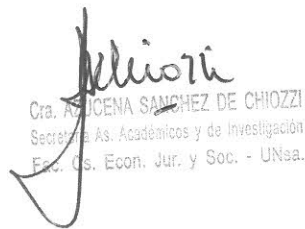 Chiozzi
Cra. AZUCENA SANCHEZ DE CHIOZZI
Secretaria As. Académicos y de Investigación
Fac. Cs. Econ. Jur. y Soc. - UNsa.